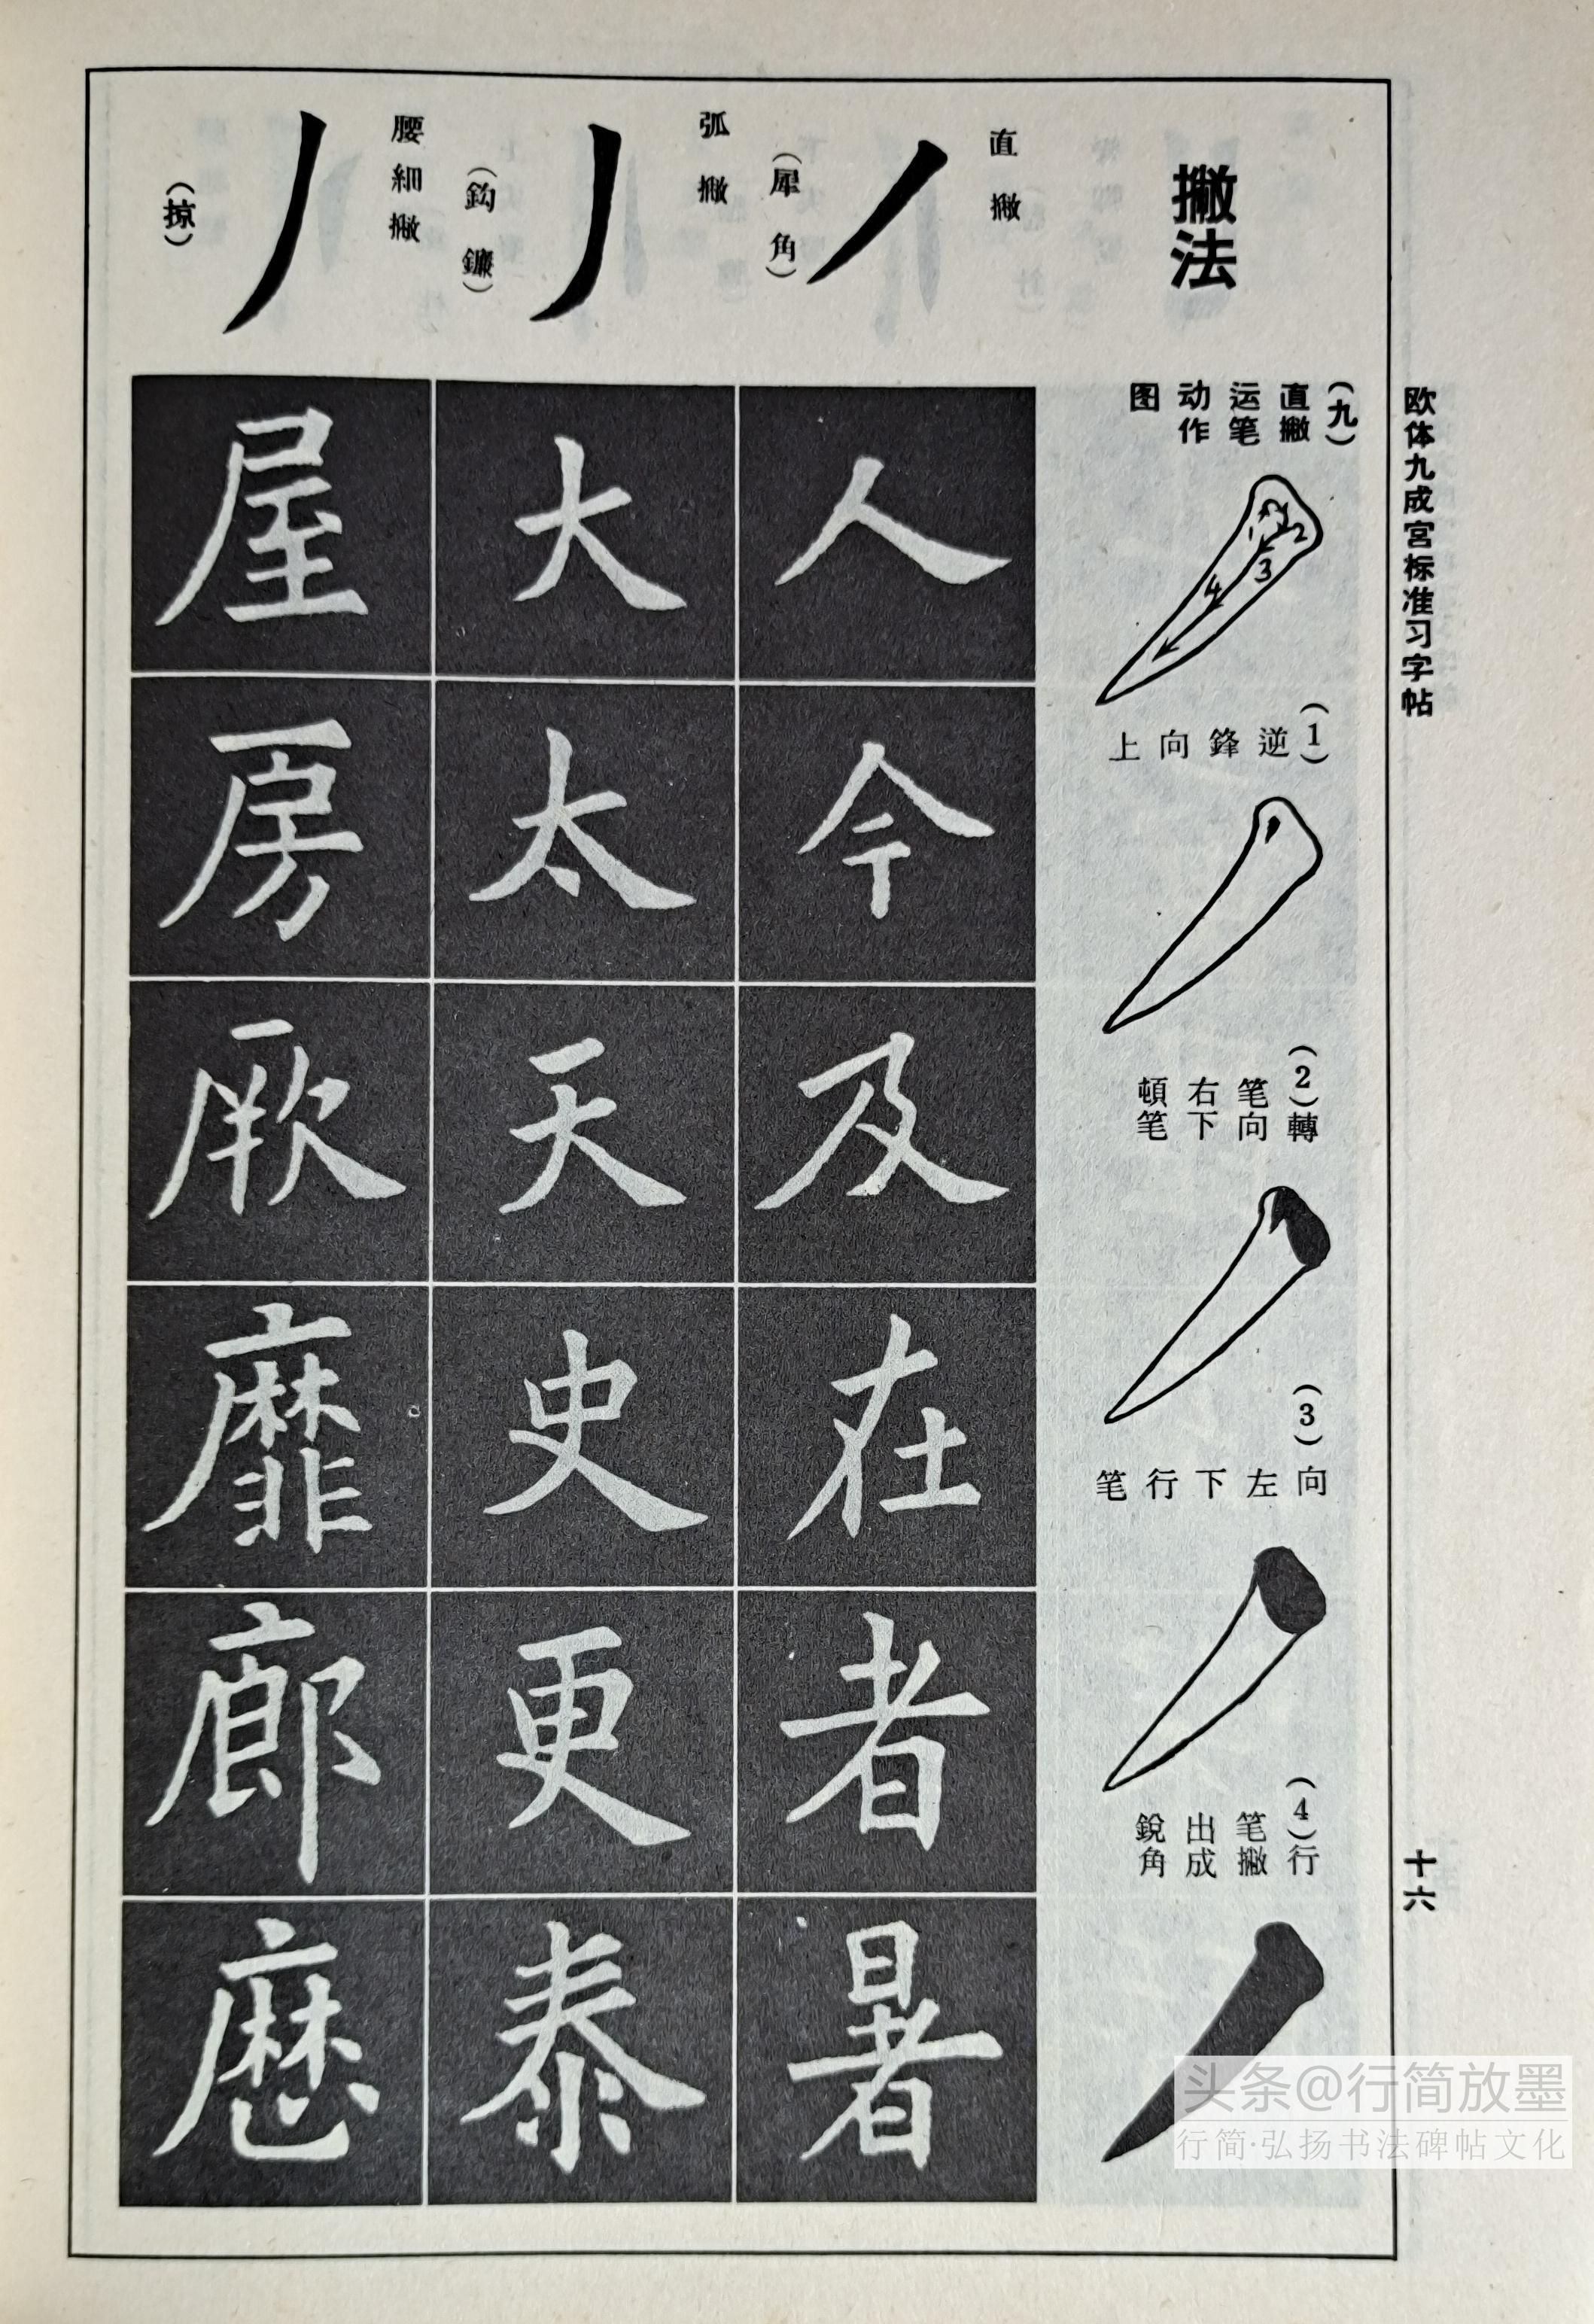 欧体九成宫标准习字帖
十六
撇法
直撇
(犀角)
弧撇
(鈎鐮)
腰細撇
(掠)
(九)
直撇
运笔
动作
图
1
2
3
4
(1)逆鋒向上
(2)轉
笔向
右下
頓笔
(3)
向左下行笔
(4)行
笔撇
出成
銳角
人
今
及
在
者
暑
大
太
天
史
更
泰
屋
房
厥
靡
廊
歷
头条@行简放墨
行简·弘扬书法碑帖文化